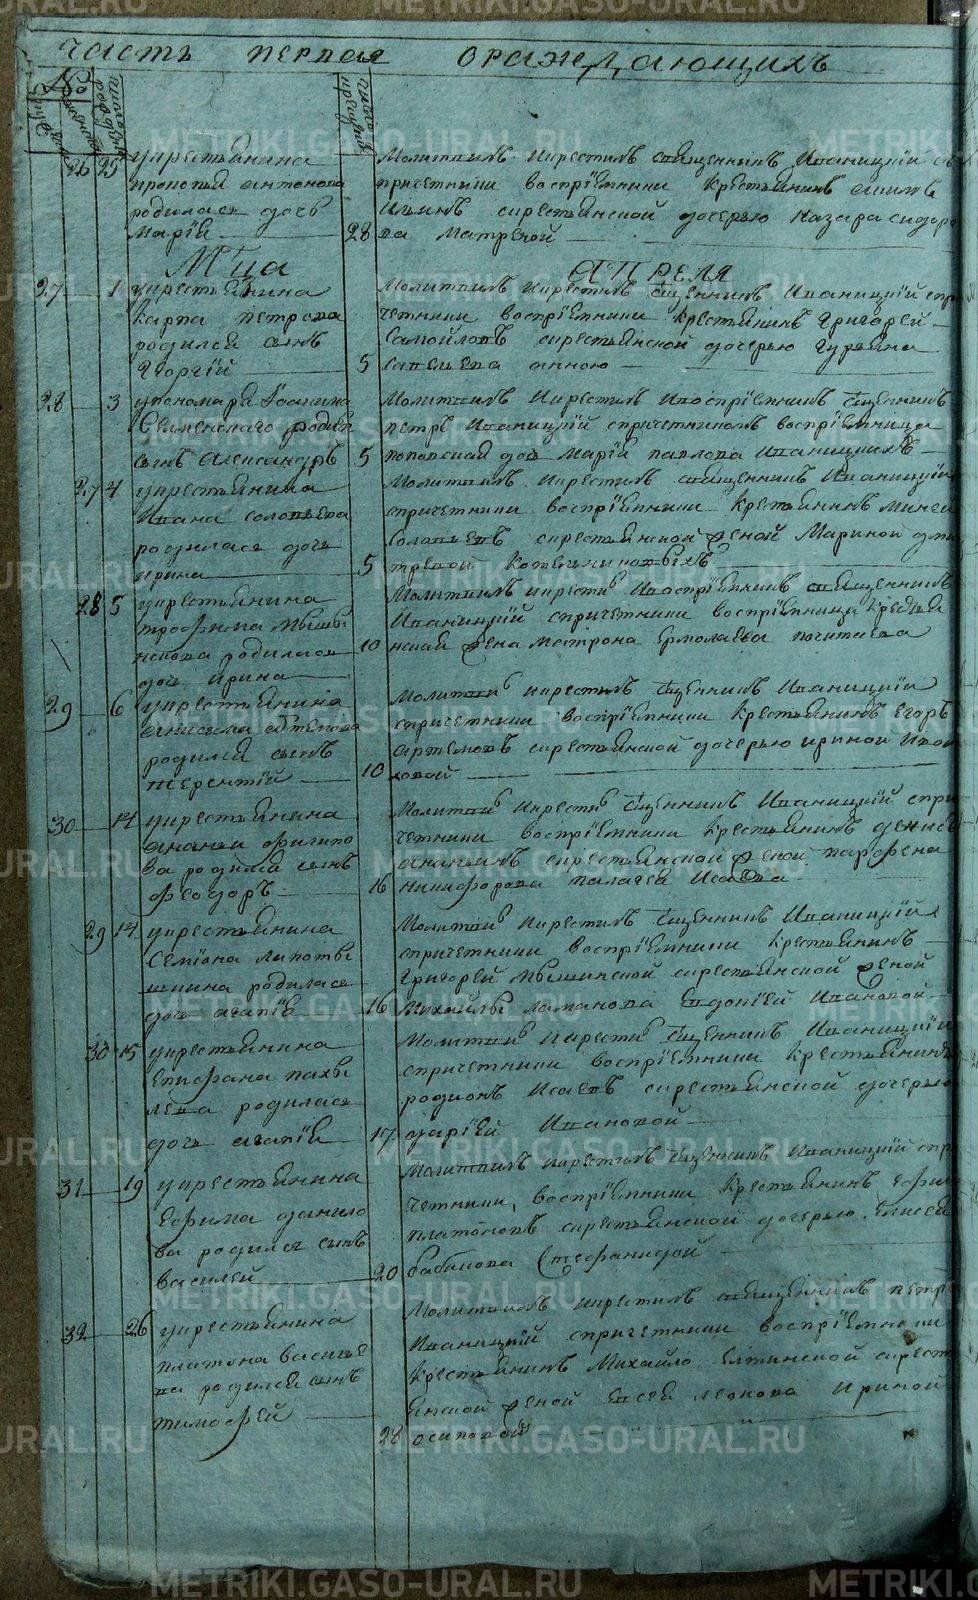 часть первая оражедающихъ
№
26 25 укрестьянина
прокопья антонова
родилась дочь
Марiя 28
Молитвилъ икрестилъ священникъ Иваницкiй съ
причетники восприемники крестьянинъ
Ильинъ скрестьянской дочерью назара сидоро
ва матреной
М'ца апреля
27 1 укрестьянина
карпа петрова
родился сынъ
Георгiй 5
Молитвилъ икрестилъ священникъ Иваницкiй спри
четники восприемники крестьянинъ Григорей
Самойловъ скрестьянской дочерью гурьяна
савельева анною
28 3 упономаря Iоанна
родил
сынъ Александръ 5
Молитвилъ икрестилъ ивоспрiемникъ священникъ
петръ Иваницкiй спричетникомъ воспрiемница
поповская доч Марiя павлова Иваницкихъ
27 4 укрестьянина
Ивана соловьева
родилась дочь
ирина 5
Молитвилъ икрестилъ священникъ Иваницкiй
спричетники воспрiемники крестьянинъ
Соловьевъ скрестьянской женой Мариной дми
трiевой
28 5 укрестьянина
трофима мыши
нскова родилась
доч ирина 10
Молитвилъ икрести ивоспрiемникъ священникъ
Иваницкiй спричетники воспрiемница крестья
нская жена матрона Ермолаева
29 6 укрестьянина
анисима артемова
родился сынъ
терентiй 10
Молитвилъ икрестилъ священникъ Иваницкiй
спричетники воспрiемники крестьянинъ Егоръ
артемовъ скрестьянской дочерью ириной
30 14 укрестьянина
ананьи филипо
ва родился сынъ
феодоръ 16
Молитви икрести священникъ Иваницкiй спри
четники воспрiемники крестьянинъ денисъ
ананьинъ скрестьянской женой парфена
никифорова палагея Исаева
29 14 укрестьянина
Семiона лапотвы
шкина родилась
доч агапiя 16
Молитви икрестилъ священникъ Иваницкiй
спричетники воспрiемники крестьянинъ
григорей мышинской скрестьянской женой
Михайлы ламанова Евдокiей Ивановой
30 15 укрестьянина
Епифана пахвы
лева родилась
дочь агапiя 17
Молитви икрести священникъ Иваницкiй
спричетники воспрiемники крестьянинъ
родионъ Исаевъ скрестьянской дочерью
дарiей Ивановой
31 19 укрестьянина
Ефима данило
ва родился сынъ
василей 20
Молитвилъ икрестилъ священникъ Иваницкiй спри
четники воспрiемники крестьянинъ Ефим
платоновъ скрестьянской дочерью Елисея
бабикова стефанидой
32 26 укрестьянина
платона василье
ва родился сынъ
тимофей 28
Молитвилъ икрестилъ священникъ петръ
Иваницкiй спричетники воспрiемники
крестьянинъ Михайло Елтинской скресть
янской женой Евсея леонова ириной
осиповой